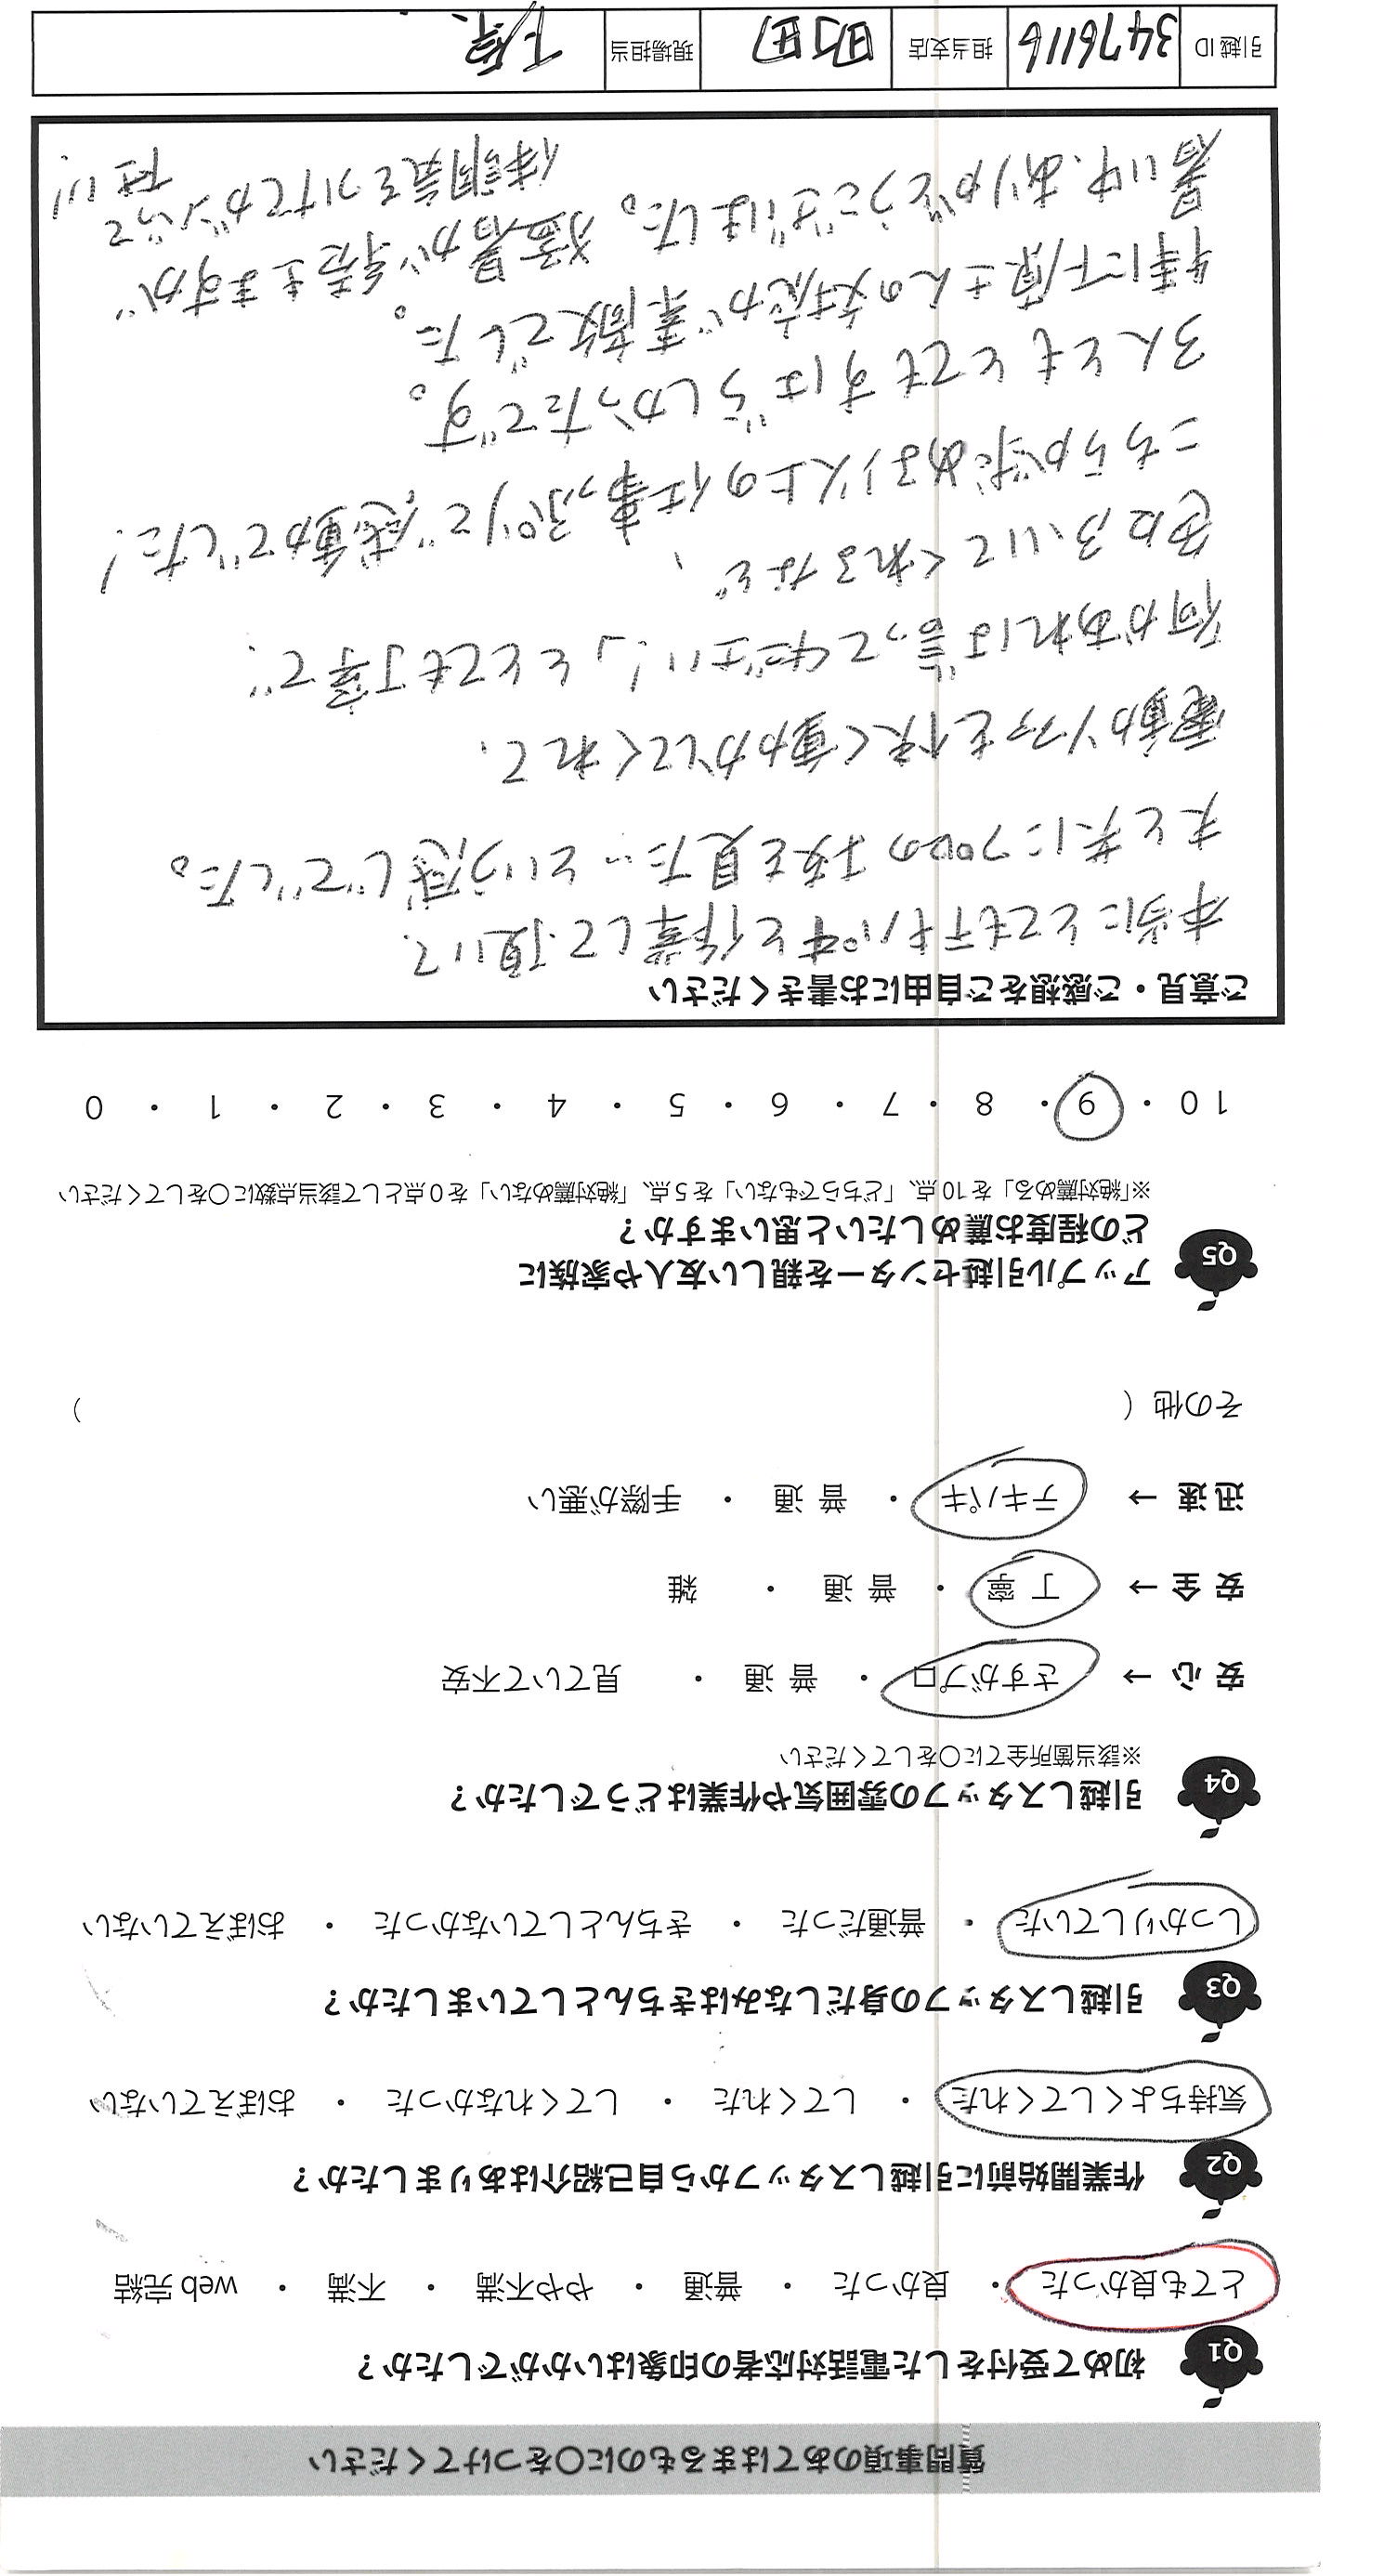 質問事項のあてはまるものに〇をつけてください
Q1 初めて受付をした電話対応者の印象はいかがでしたか？
とても良かった ・ 良かった ・ 普通 ・ やや不満 ・ 不満 ・ web 完結
Q2 作業開始前に引越しスタッフから自己紹介はありましたか？
気持ちよくしてくれた ・ してくれた ・ してくれなかった ・ おぼえていない
Q3 引越しスタッフの身だしなみはきちんとしていましたか？
しっかりしていた ・ 普通だった ・ きちんとしていなかった ・ おぼえていない
Q4 引越しスタッフの雰囲気や作業はどうでしたか？
※該当箇所全てに〇をしてください
安 心 → さすがプロ ・ 普 通 ・ 見ていて不安
安 全 → 丁 寧 ・ 普 通 ・ 雑
迅 速 → テキパキ ・ 普 通 ・ 手際が悪い
その他（ ）
Q5 アップル引越センターを親しい友人や家族に
どの程度お薦めしたいと思いますか？
※「絶対薦める」を10点、「どちらでもない」を5点、「絶対薦めない」を0点として該当点数に〇をしてください
10 ・ 9 ・ 8 ・ 7 ・ 6 ・ 5 ・ 4 ・ 3 ・ 2 ・ 1 ・ 0
ご意見・ご感想をご自由にお書きください
本当にとてもテキパキと作業して頂いて、
夫と共にプロの技を見た…という感じでした。
電動ソファを快く動かしてくれて、
何かあれば言って下さい！」ととても丁寧で、
色々ふいてくれるなど、
こちらが求める以上の仕事っぷりで感動でした！
3人ともとてもすばらしかったです。
特に下原さんの対応が素敵でした。
暑い中、ありがとうございました。猛暑が続きますが
体調気をつけてがんばって
下さい!!
引越ID 3476116 担当支店 町田 現場担当 下原